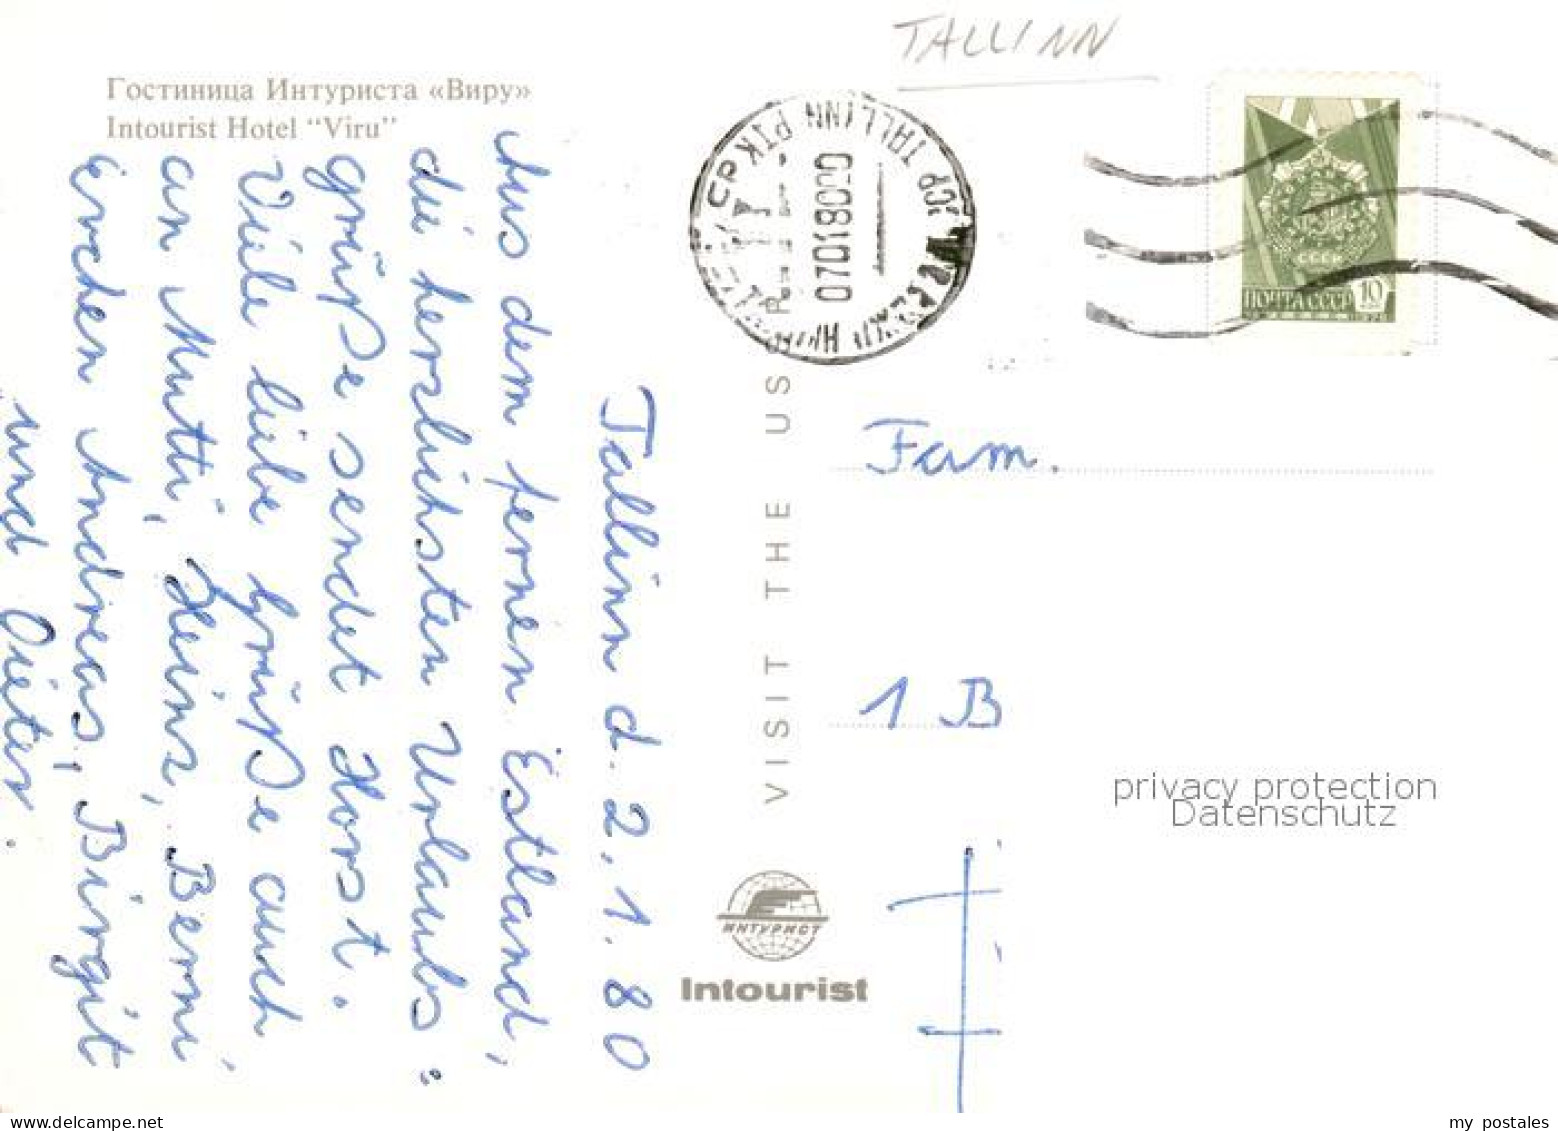 TALLINN
Гостиница Интуриста «Виру»
Intourist Hotel "Viru"
Tallinn d. 2.1.80
Aus dem fernen Estland,
die herzlichsten Urlaubs=
grüße sendet Horst.
Viele liebe Grüße auch
an Mutti, Heinz, Berni,
Evchen Andreas, Birgit
und Dieter.
VISIT THE US
TALLINN
07018000
СССР
ПОЧТА СССР 10
Fam.
1 B
privacy protection
Datenschutz
ИНТУРИСТ
Intourist
delcampe.net
my_postales